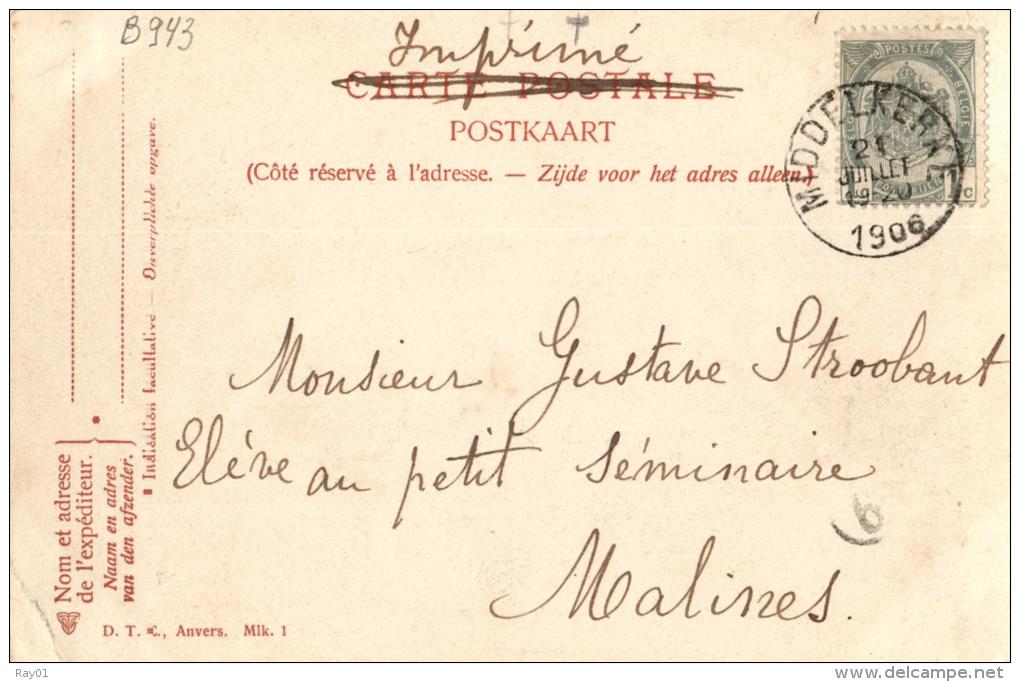 B943
Imprimé
CARTE POSTALE
POSTKAART
(Côté réservé à l'adresse. — Zijde voor het adres alleen.)
POSTES
MIDDELKERKE
21
JUILLET
19-20
1906
Monsieur Gustave Stroobant
Elève au petit séminaire
Malines.
6
Nom et adresse
de l'expéditeur.
Naam en adres
van den afzender.
*
* Indication facultative — Onverplichte opgave.
D. T. C., Anvers. Mlk. 1
Ray01
www.delcampe.net